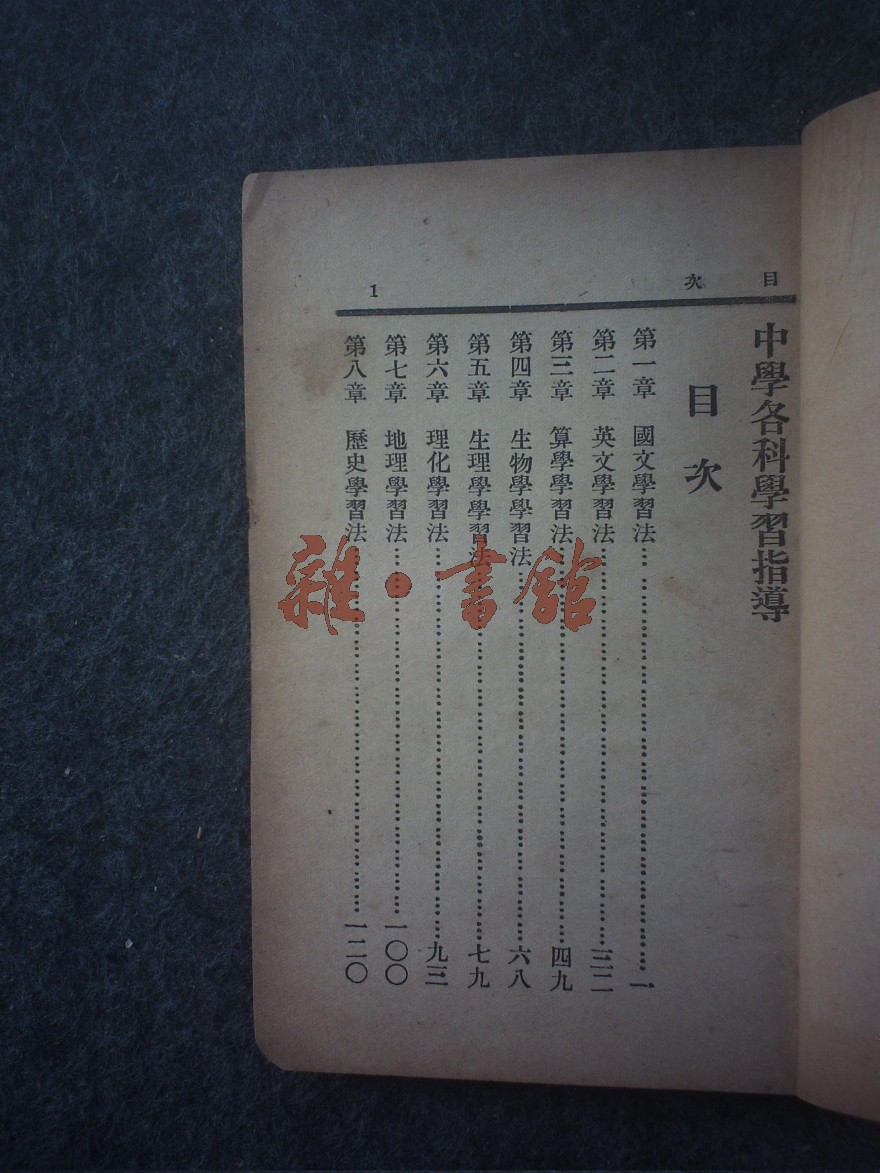 目次
1
中學各科學習指導
目次
第一章 國文學習法……一
第二章 英文學習法……三二
第三章 算學學習法……四九
第四章 生物學學習法……六八
第五章 生理學學習法……七九
第六章 理化學習法……九三
第七章 地理學習法……一〇〇
第八章 歷史學習法……一二〇
雜·書館